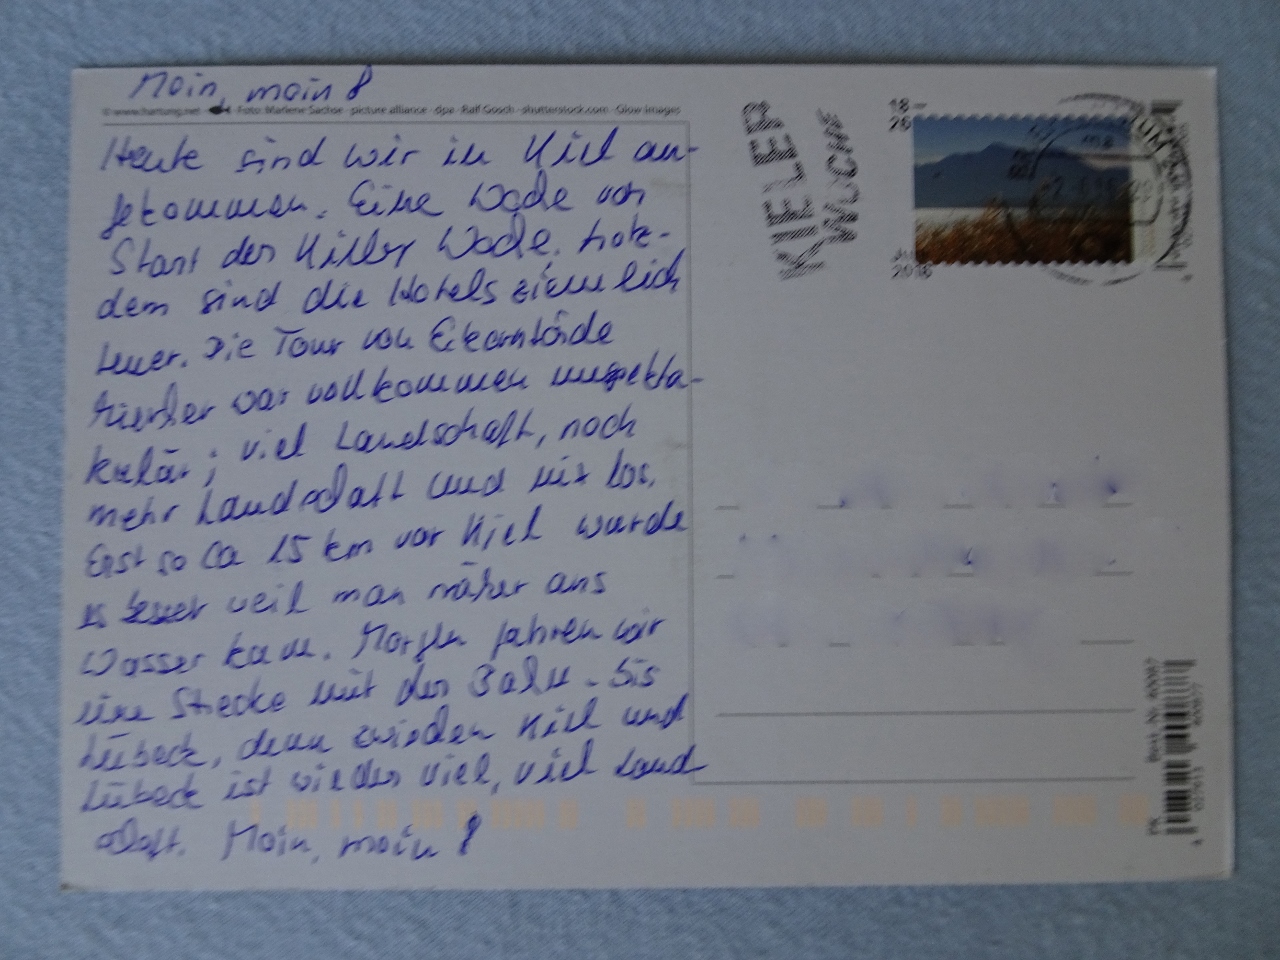 Moin, moin!
© www.hartung.net Foto: Marlene Sachse · picture alliance · dpa · Ralf Gosch · shutterstock.com · Glow Images
Heute sind wir in Kiel an-
gekommen. Eine Woche vor
Start der Kieler Woche. trotz-
dem sind die Hotels ziemlich
teuer. Die Tour von Eckernförde
hierher war vollkommen unspekta-
kulär; viel Landschaft, noch
mehr Landschaft und nix los.
Erst so ca 15 km vor Kiel wurde
es besser weil man näher ans
Wasser kam. Morgen fahren wir
eine Strecke mit der Bahn. bis
Lübeck, denn zwischen Kiel und
Lübeck ist wieder viel, viel Land
schaft. Moin, moin!
KIELER
WOCHE
18–
26
2016
Best.-Nr. 60087
PK